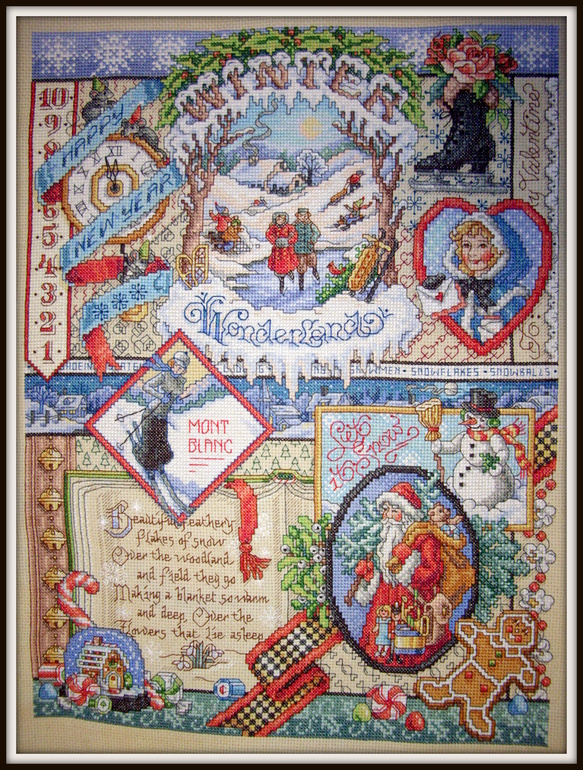 WINTER
Wonderland
10
9
8
5
4
3
2
1
HAPPY
NEW YEAR
XII
Valentine
SNOWMEN • SNOWFLAKES • SNOWBALLS •
MONT
BLANC
Let
it Snow
Beauty feathery
flakes of snow
Over the woodland
and field they go
Making a blanket so warm
and deep Over the
Flowers that lie asleep